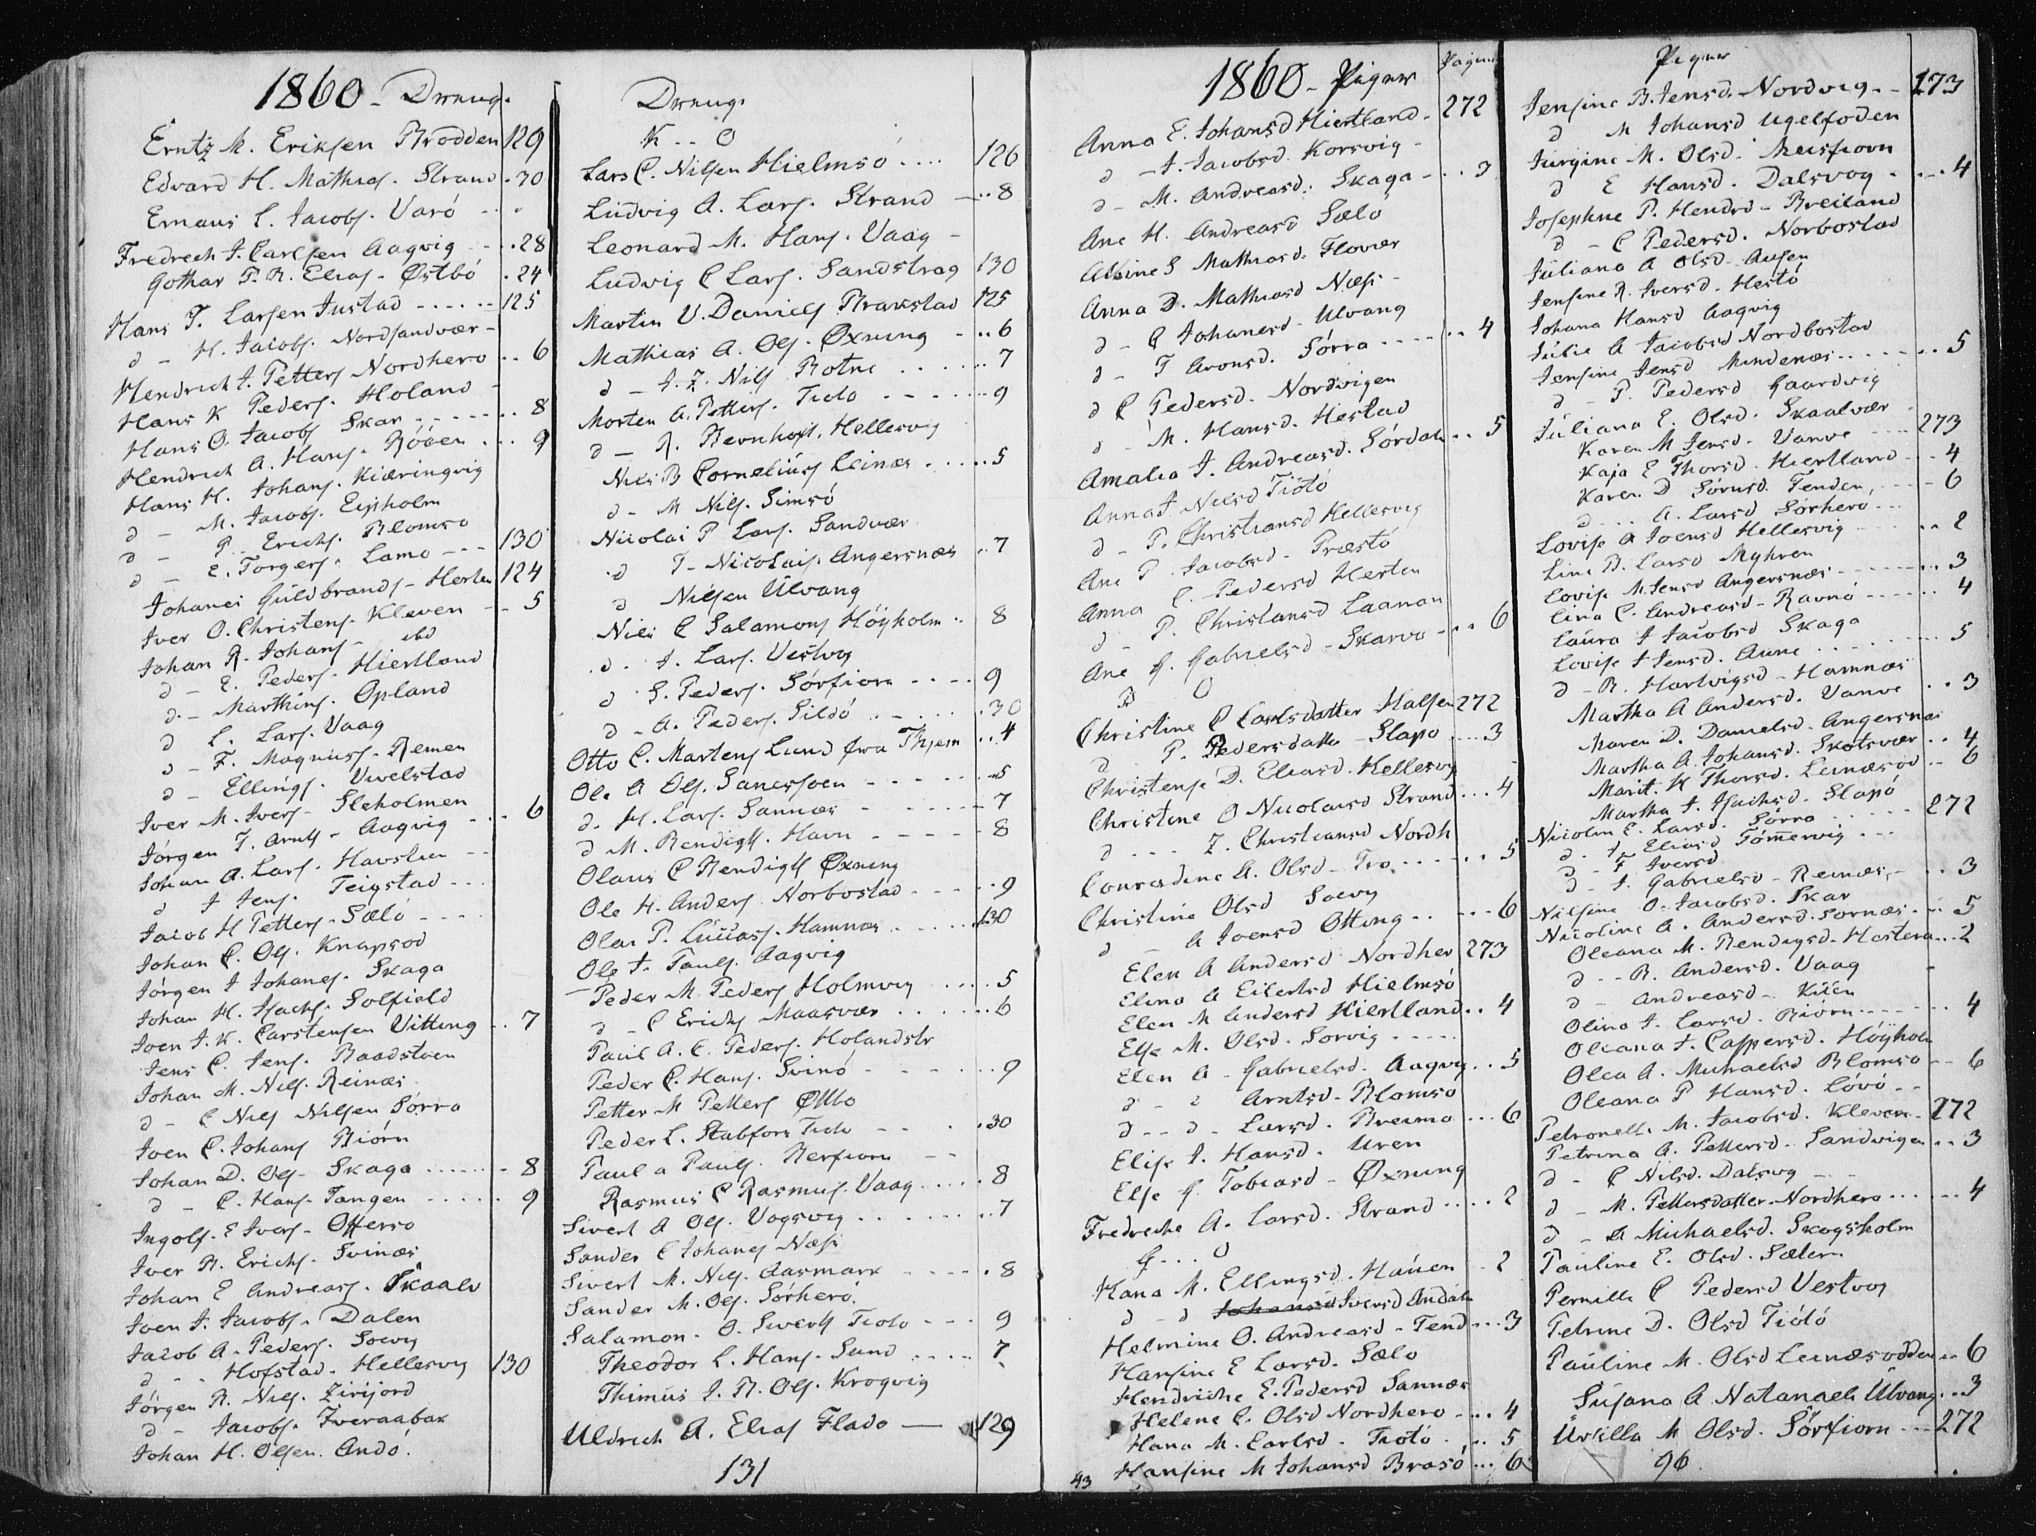 1860 - Drenge
Erntz M. Eriksen Brodden 129
Edvard H. Mathias. Strand . 30
Emaus L. Jacobs. Varö
Fredrech J. Carlsen Aagvig . . 28
Gothar P. R. Elias. Østbö . 24
Hans T. Larsen Justad . . . . . 125
d - H. Jacobs. Nordsandvær -
Hendrich J. Petters Nordherö . . 6
Hans K Peders. Holand
Hans O. Jacobs Skar . . . . . . . 8
Hendrich A. Hans. Rööen . . . 9
Hans H. Johans. Kiæringvig
d - M. Jacobs. Eisholm
d - P. Erichs. Blomsö
d - E. Torgers. Lamo - - - 130
Johanes Guldbrands - Herten 124
Iver O. Christens. Kleven - - 5
Johan R. Johans - ibd
d - E. Peders. Hiertland
d. - Marthins. Opland
d L. Lars. Vaag
d - F. Magnus. Remen
d - Ellings. Uvelstad
Iver M. Ivers. Sleholmen
Jörgen T. Arnts - Aagvig - . . 6
Johan A. Lars. Havstein - -
d J Jens. Teigstad . . .
Jacob H Petters. Sælö - . . .
Johan C. Ols. Knapsod
Jörgen J Johanes. Skaga
Johan H. Isachs. Solfield
Joen J. K. Carstensen Vitting . . 7
Jens C. Jens. Baadstoen
Johan M. Nils. Reinæs
d - C Nils Nilsen Sörra
Joen C. Johans Biörn
Johan D. Ols. Skaga . . . . . . 8
d - C. Hans. Tangen . . . . . . 9
Ingolf. E Ivers - Offersö
Iver B. Erichs. Svinæs
Johan E Andreas. Skaalv
Joen J. Jacobs. Dalen
Jacob A. Peders. Soevig
d - . Hofstad. Hellesvig 130
Jörgen R. Nils. Zirijord
d - Jacobs. Tveraabak
Johan H. Olsen. Andö.
Drenge
K . . O
Lars C. Nilsen Hielmsö . . . . 126
Ludvig A. Lars. Strand - . . 8
Leonard M. Hans. Vaag -
Ludvig C Lars. Sandstrag 130
Martin V. Daniels Brakstad 125
Mathias A. Ols. Øxning - . . 6
d - J. Z. Nils Botne . . . . . 7
Morten A. Petters. Tiötö - - - . . 9
d - R. Bernhoft. Hellesvig
Nils B Cornelius Leinæs . . . . . 5
d - M Nils. Simsö
Nicolai P Lars. Sandvær
d J - Nicolais. Angersnæs . . 7
d Nilsen Ulvang
Nils C Salamons Höÿholm . . 8
d. J. Lars. Vestvog
d S. Peders. Sörfiorn . . . . 9
d - A. Peders. Sildö . . . . . . . 30
Otto C. Martens Lund fra Thjem . . 4
Ole A Ols. Sanessoen - - - - . . 5
d. H. Lars. Sannæs - - - - - - 7
d M. Bendigts. Havn - - - - - 8
Olaus C Bendigts Øxning
Ole H. Anders Norbostad - - - - . 9
Olai P. Luccas. Hamnæs . . . . . 130
Ole J. Pauls. Aagvig
Peder M. Peders Holmvig . . . . 5
d - C Erichs Maasvær . . . . . . 6
Paul A. C. Peders. Holandstr
Peder C. Hans. Svinö - - - - . . 9
Petter M Petters Øttbo
Peder L. Stabfors Tiötö - - . . 30
Paul a Pauls. Berfiorn - -
Rasmus C Rasmus. Vaag . . . . . 8
Sivert A Ols. Vogsvig . . . . . . . . 7
Sander C Johanes Næss
Sivert M. Nils. Aasmark - - - - . 8
Sander M. Ols. Sörherö.
Salamon. O. Siverts Tiötö - - - 9
Theodor L. Hans. Sund . . . . . 7
Thimus J. R. Ols. Krogvig
Uldrich A. Elias Fladö — 129
131
1860 - Piger Pagina
Anna E. Johansd Hiertland - 272
d - J. Jacobsd. Korsvig -
d - M. Andreasd. Skaga - . . 3
Ane H. Andreasd Sælö
Albine S Mathiasd. Flovær
Anna D. Mathiasd Næss -
d - C Johanesd - Ulvang
d - T Aronsd. Sörra . . . . . . . 4
d C Pedersd. Nordvigen
d - M. Hansd. Hestad
Amalia J. Andreasd. Sördal . . 5
Anna J Nilsd Tiötö
d - P. Christiansd Hellesvig
Ane P. Jacobsd - Præstö
Anna C. Pedersd Herten
d - P. Christiansd Laanan
Ane G. Gabrielsd - Skarva - . . 6
B O
Christine C Carlsdatter Halsen 272
d P. Pedersdatter - Slapö . . . . 3
Christense D. Eliasd. Hellesvig
Christine O Nicolaisd Strand . . . 4
d . . . Z. Christiansd Nordh
Conradine A. Olsd - Tro . . . . . . . 5
Christine Olsd Soevig
d - A Joensd Otting . . . . . 6
Elen A Andersd Nordher 273
Elina A Eilertsd Hielmsö
Elen M Andersd Hiertland . . 4
Else M. Olsd. Sorvig . . . . .
Elen A - Gabrielsd. Aagvig . . 5
d - - Arntsd. Blomsö
d - - d - Larsd. Breimo . . . 6
Elise J. Hansd. Uren
Else G. Tobiasd - Øxning
Fredrecke A. Larsd. Strand . . . . 2
G . . . O
Hana M. Ellingsd. Hauen - 2
d - d Johansd Iversd Andaln
Helmine O. Andreasd - Tend . . 3
Hansine E Larsd. Sælö
Hendricke E. Pedersd Sannæs
Helene C. Olsd Nordherö . . . . 4
Hana M. Earlsd. Tiötö . . . 5
43 Hansine M Johansd Brasö . . . 6
Piger
Jensine B. Jensd. Nordvig - - 273
d M Johansd Ugelfoden
Jürgine M. Olsd. Meisfiorn
d E Hansd. Dalsvog . . . . 4
Josephine P. Hendrd - Breiland
d - C Pedersd. Norbostad
Juliana A Olsd - Ausen
Jensine R. Iversd. Hestö
Johana Hansd Aagvig
Julie A Jacobsd Nordbostad
Jensine Jensd Mindenæs . . . . . . . 5
d - P. Pedersd Gaardvig
Juliana E. Olsd. Skaalvær
Karen M Jensd. Vanve . . . . 273
Kaja E Thorsd. Hiertland . . . 4
Karen D Sörensd. Tenden . - - 6
d . . . A. Larsd Sörherö . . .
Lovise A Joensd Hellesvig - - - . . 2
Line B. Larsd Myhren
Lovise M. Jensd Angersnæs - - - - . . 3
Lina C. Andreasd - Ravnö . . . . . . 4
Laura J Jacobsd Skaga
Lovise J Jensd. Aune . . . . . . . . 5
d - R. Hartvigsd - Hamnæs
Martha A Andersd. Vanve . . 3
Maren D. Danielsd. Angersnæs
Martha A. Johansd. Skotsvær . . 4
Marit. K Thorsd. Leinæsod . . 6
Martha J. Isachsd. Slapö
Nicoline E. Larsd. Sörra . . . . . 272
d. J. Eliasd Tömervig . . .
d - F Iversd
d - J. Gabrielsd - Reinæs - . . 3
Nilsine O. Jacobsd. Skar
Nicoline A. Andersd. Sornæs . . . 5
Oleana M. Bendigsd. Hestera . . 2
d - - B. Andersd. Vaag
d - Andreasd - Kuen
Olina J. Larsd. Biörn . . . . . . . 4
Oleana J. Caspersd. Höÿholm
Olea A. Michaelsd Blomsö - - 6
Oleana P Hansd. Lövö - -
Petronelle M. Jacobsd. Kleven - 272
Petrina A. Pettersd. Sandvigen . . 3
d - C Nilsd. Dalsvog - -
d - M. Pettersdatter. Nordherö . . . . . . 4
d - A Michaelsd. Skogsholm
Pauline E. Olsd. Sætern
Pernille C Pedersd Vestvog
Petrine D. Olsd Tiötö
Pauline M. Olsd Leinæsodden . . 6
Susana A Natanaels Ulvang . . 3
Ursilla M Olsd. Sörfiorn - - - 272
96